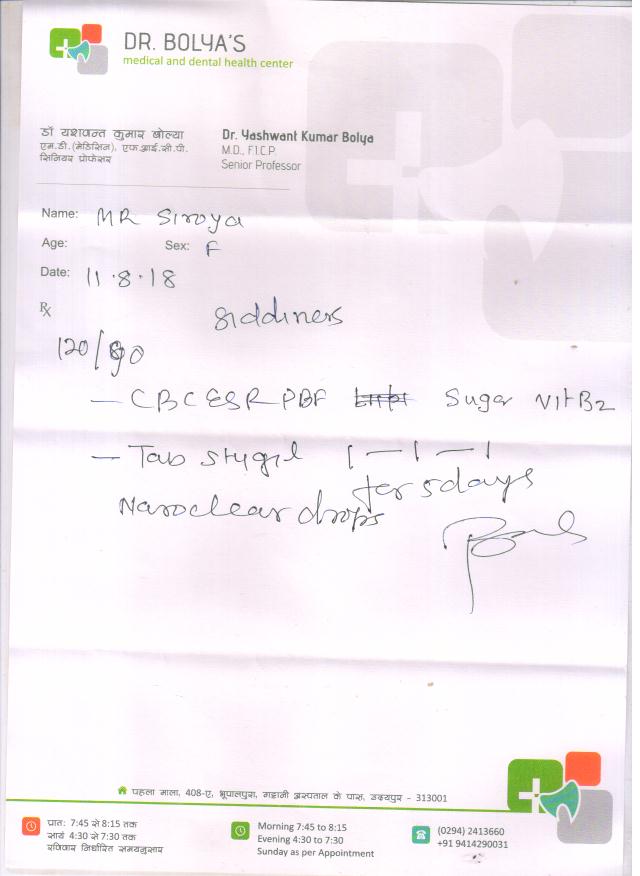 DR. BOLYA'S
medical and dental health center
डॉ यशवन्त कुमार बोल्या
एम.डी.(मेडिसिन), एफ.आई.सी.पी.
सिनियर प्रोफेसर
Dr. Yashwant Kumar Bolya
M.D., F.I.C.P.
Senior Professor
Name: MR Siroya
Age: Sex: F
Date: 11.8.18
Rx
Giddiness
120/80
- CBC ESR PBF Sugar Vit B2
- Tab stugil 1-1-1
for 5 days
Nasoclear drops
पहला माला, 408-ए, भूपालपुरा, गट्टानी अस्पताल के पास, उदयपुर - 313001
प्रातः 7:45 से 8:15 तक
सायं 4:30 से 7:30 तक
रविवार निर्धारित समयनुसार
Morning 7:45 to 8:15
Evening 4:30 to 7:30
Sunday as per Appointment
(0294) 2413660
+91 9414290031